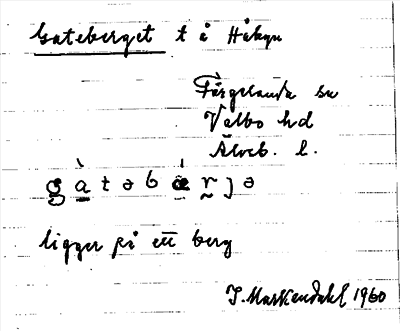 Gateberget t å Håkyn
Färgelanda sn
Valbo hd
Älvsb. l.
gàtəbǽr̰ȷə
ligger på ett berg
J. Markendahl 1960